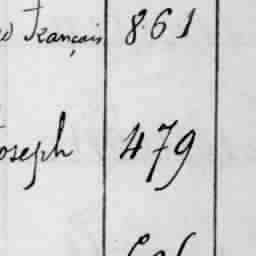 François 861
Joseph 479